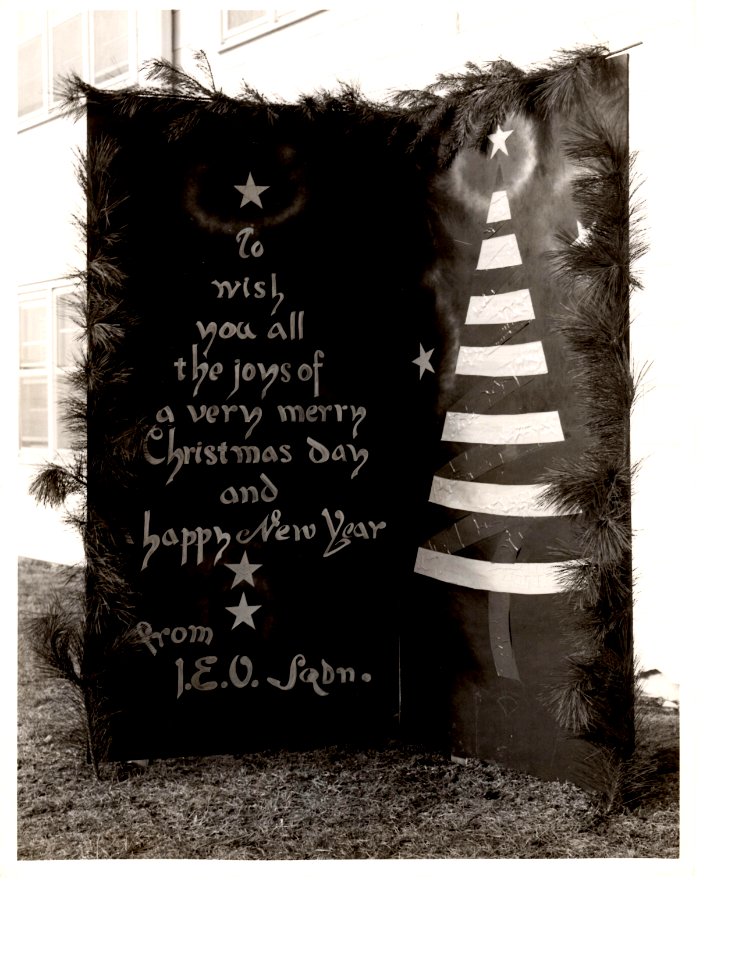 To
wish
you all
the joys of
a very merry
Christmas day
and
happy New Year
from
I.E.O. Sqdn.